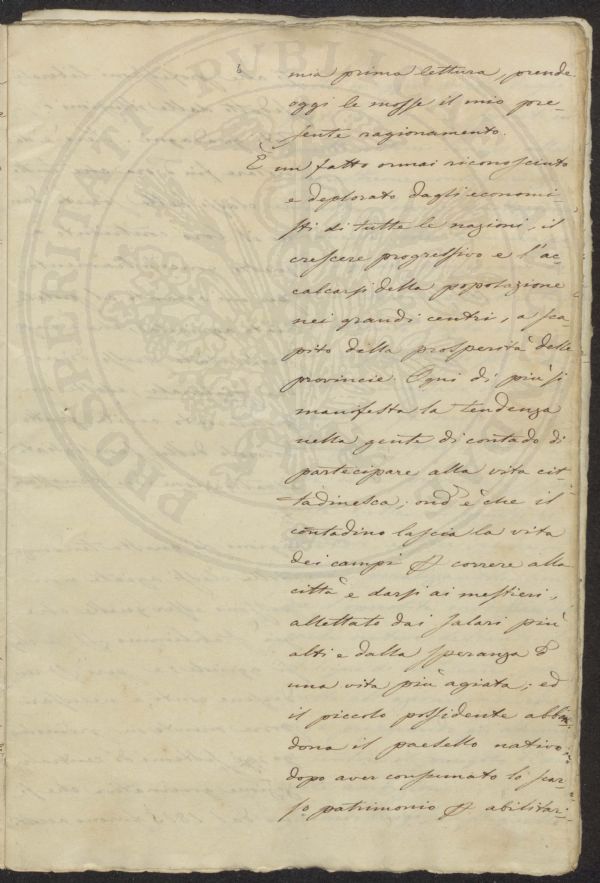 6
mia prima lettura, prende
oggi le mosse il mio pre-
sente ragionamento.
È un fatto ormai riconosciuto
e deplorato dagli economi
sti di tutte le nazioni, il
crescere progressivo e l'ac-
calcarsi della popolazione
nei grandi centri, a sca-
pito della prosperità delle
provincie. Ogni dì più si
manifesta la tendenza
nella gente di contado di
partecipare alla vita cit-
tadinesca; ond'è che il
contadino lascia la vita
dei campi p correre alla
città e darsi ai mestieri,
allettato dai salari più
alti e dalla speranza d
una vita più agiata; ed
il piccolo possidente abban
dona il paesello nativo
dopo aver consumato lo scar-
so patrimonio p abilitar-
PROSPERITATI PVBLICAE